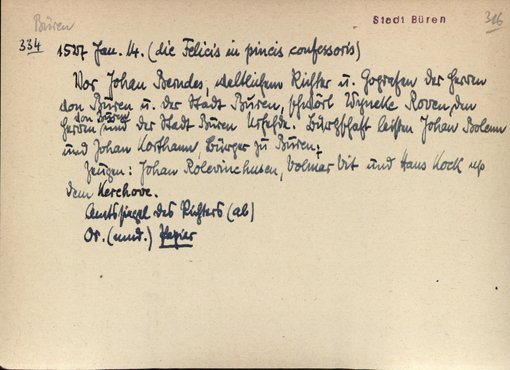 Büren
Stadt Büren
316
334 1527 Jan. 14. (die Felicis in pincis confessoris)
Vor Johan Berndes, weltlichem Richter u. Gografen der Herren
von Büren u. der Stadt Büren, schwört Wyneke Roven, den
Herren von Büren und der Stadt Büren Urfehde. Bürgschaft leisten Johan
und Johan Korthann, Bürger zu Büren.
Zeugen: Johan Rolevinchusen, Volmar Vit und Hans Kock up
dem Kerchove.
Amtssiegel des Richters (ab)
Or. (mnd.) Papier